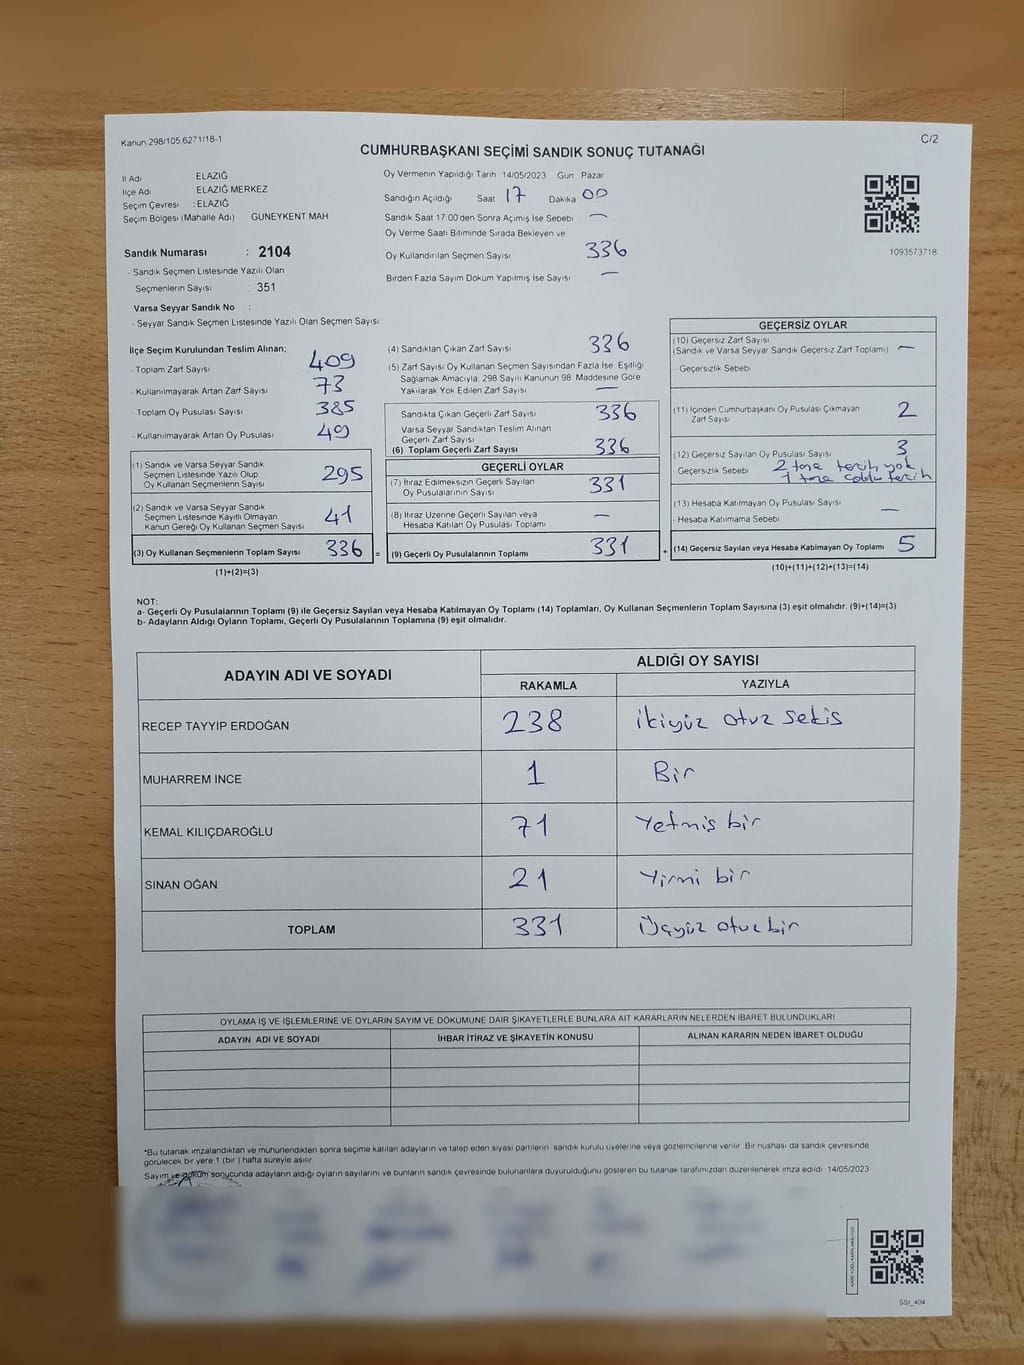 Kanun.298/105.6271/18-1
C/2
CUMHURBAŞKANI SEÇİMİ SANDIK SONUÇ TUTANAĞI
İl Adı : ELAZIĞ
İlçe Adı ELAZIĞ MERKEZ
Seçim Çevresi : ELAZIĞ
Seçim Bölgesi (Mahalle Adı) GUNEYKENT MAH
Oy Vermenin Yapıldığı Tarih 14/05/2023 Gün Pazar
Sandığın Açıldığı Saat 17 Dakika 00
Sandık Saat 17.00'den Sonra Açımış İse Sebebi —
Oy Verme Saati Bitiminde Sırada Bekleyen ve
Oy Kullandırılan Seçmen Sayısı 336
Birden Fazla Sayım Döküm Yapılmış İse Sayısı —
1093573718
Sandık Numarası : 2104
- Sandık Seçmen Listesinde Yazılı Olan
Seçmenlerin Sayısı : 351
Varsa Seyyar Sandık No :
- Seyyar Sandık Seçmen Listesinde Yazılı Olan Seçmen Sayısı:
İlçe Seçim Kurulundan Teslim Alınan;
- Toplam Zarf Sayısı 409
- Kullanılmayarak Artan Zarf Sayısı 73
- Toplam Oy Pusulası Sayısı 385
- Kullanılmayarak Artan Oy Pusulası 49
(1) Sandık ve Varsa Seyyar Sandık
Seçmen Listesinde Yazılı Olup
Oy Kullanan Seçmenlerin Sayısı 295
(2) Sandık ve Varsa Seyyar Sandık
Seçmen Listesinde Kayıtlı Olmayan
Kanun Gereği Oy Kullanan Seçmen Sayısı 41
(3) Oy Kullanan Seçmenlerin Toplam Sayısı 336 =
(1)+(2)=(3)
(4) Sandıktan Çıkan Zarf Sayısı 336
(5) Zarf Sayısı Oy Kullanan Seçmen Sayısından Fazla İse, Eşitliği
Sağlamak Amacıyla, 298 Sayılı Kanunun 98. Maddesine Göre
Yakılarak Yok Edilen Zarf Sayısı —
Sandıkta Çıkan Geçerli Zarf Sayısı 336
Varsa Seyyar Sandıktan Teslim Alınan
Geçerli Zarf Sayısı
(6) Toplam Geçerli Zarf Sayısı 336
GEÇERLİ OYLAR
(7) İtiraz Edilmeksizin Geçerli Sayılan
Oy Pusulalarının Sayısı 331
(8) İtiraz Üzerine Geçerli Sayılan veya
Hesaba Katılan Oy Pusulası Toplamı —
(9) Geçerli Oy Pusulalarının Toplamı 331 +
GEÇERSİZ OYLAR
(10) Geçersiz Zarf Sayısı
(Sandık ve Varsa Seyyar Sandık Geçersiz Zarf Toplamı) —
- Geçersizlik Sebebi
(11) İçinden Cumhurbaşkanı Oy Pusulası Çıkmayan
Zarf Sayısı 2
(12) Geçersiz Sayılan Oy Pusulası Sayısı 3
- Geçersizlik Sebebi 2 tane tercih yok
1 tane çoklu tercih
(13) Hesaba Katılmayan Oy Pusulası Sayısı —
- Hesaba Katılmama Sebebi
(14) Geçersiz Sayılan veya Hesaba Katılmayan Oy Toplamı 5
(10)+(11)+(12)+(13)=(14)
NOT:
a- Geçerli Oy Pusulalarının Toplamı (9) ile Geçersiz Sayılan veya Hesaba Katılmayan Oy Toplamı (14) Toplamları, Oy Kullanan Seçmenlerin Toplam Sayısına (3) eşit olmalıdır. (9)+(14)=(3)
b- Adayların Aldığı Oyların Toplamı, Geçerli Oy Pusulalarının Toplamına (9) eşit olmalıdır.
ADAYIN ADI VE SOYADI ALDIĞI OY SAYISI
RAKAMLA YAZIYLA
RECEP TAYYİP ERDOĞAN 238 ikiyüz otuz sekis
MUHARREM İNCE 1 Bir
KEMAL KILIÇDAROĞLU 71 Yetmiş bir
SİNAN OĞAN 21 Yirmi bir
TOPLAM 331 Üçyüz otuz bir
OYLAMA İŞ VE İŞLEMLERİNE VE OYLARIN SAYIM VE DÖKÜMÜNE DAİR ŞİKAYETLERLE BUNLARA AİT KARARLARIN NELERDEN İBARET BULUNDUKLARI
ADAYIN ADI VE SOYADI İHBAR İTİRAZ VE ŞİKAYETİN KONUSU ALINAN KARARIN NEDEN İBARET OLDUĞU
*Bu tutanak imzalandıktan ve mühürlendikten sonra seçime katılan adayların ve talep eden siyasi partilerin sandık kurulu üyelerine veya gözlemcilerine verilir. Bir nüshası da sandık çevresinde
görülecek bir yere 1 (bir) hafta süreyle asılır.
Sayım ve döküm sonucunda adayların aldığı oyların sayılarını ve bunların sandık çevresinde bulunanlara duyurulduğunu gösteren bu tutanak tarafımızdan düzenlenerek imza edildi. 14/05/2023
SSI_404